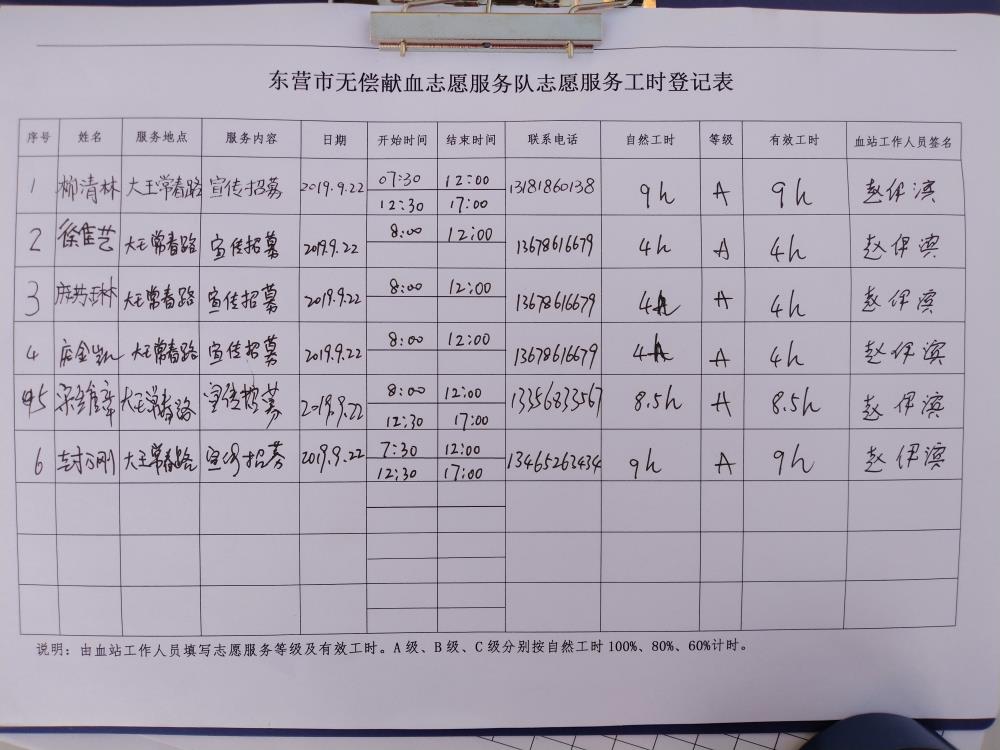 东营市无偿献血志愿服务队志愿服务工时登记表
序号 姓名 服务地点 服务内容 日期 开始时间 结束时间 联系电话 自然工时 等级 有效工时 血站工作人员签名
1 柳清林 大王常春路 宣传招募 2019.9.22 07:30 12:00 13181860138 9h A 9h 赵伊滨
12:30 17:00
2 徐隹艺 大王常春路 宣传招募 2019.9.22 8:00 12:00 13678616679 4h A 4h 赵伊滨
3 大王常春路 宣传招募 2019.9.22 8:00 12:00 13678616679 4h A 4h 赵伊滨
4 大王常春路 宣传招募 2019.9.22 8:00 12:00 13678616679 4h A 4h 赵伊滨
5 宋维章 大王常春路 宣传招募 2019.9.22 8:00 12:00 13356833567 8.5h A 8.5h 赵伊滨
12:30 17:00
6 封万刚 大王常春路 宣传招募 2019.9.22 7:30 12:00 13465263434 9h A 9h 赵伊滨
12:30 17:00
说明：由血站工作人员填写志愿服务等级及有效工时。A级、B级、C级分别按自然工时100%、80%、60%计时。